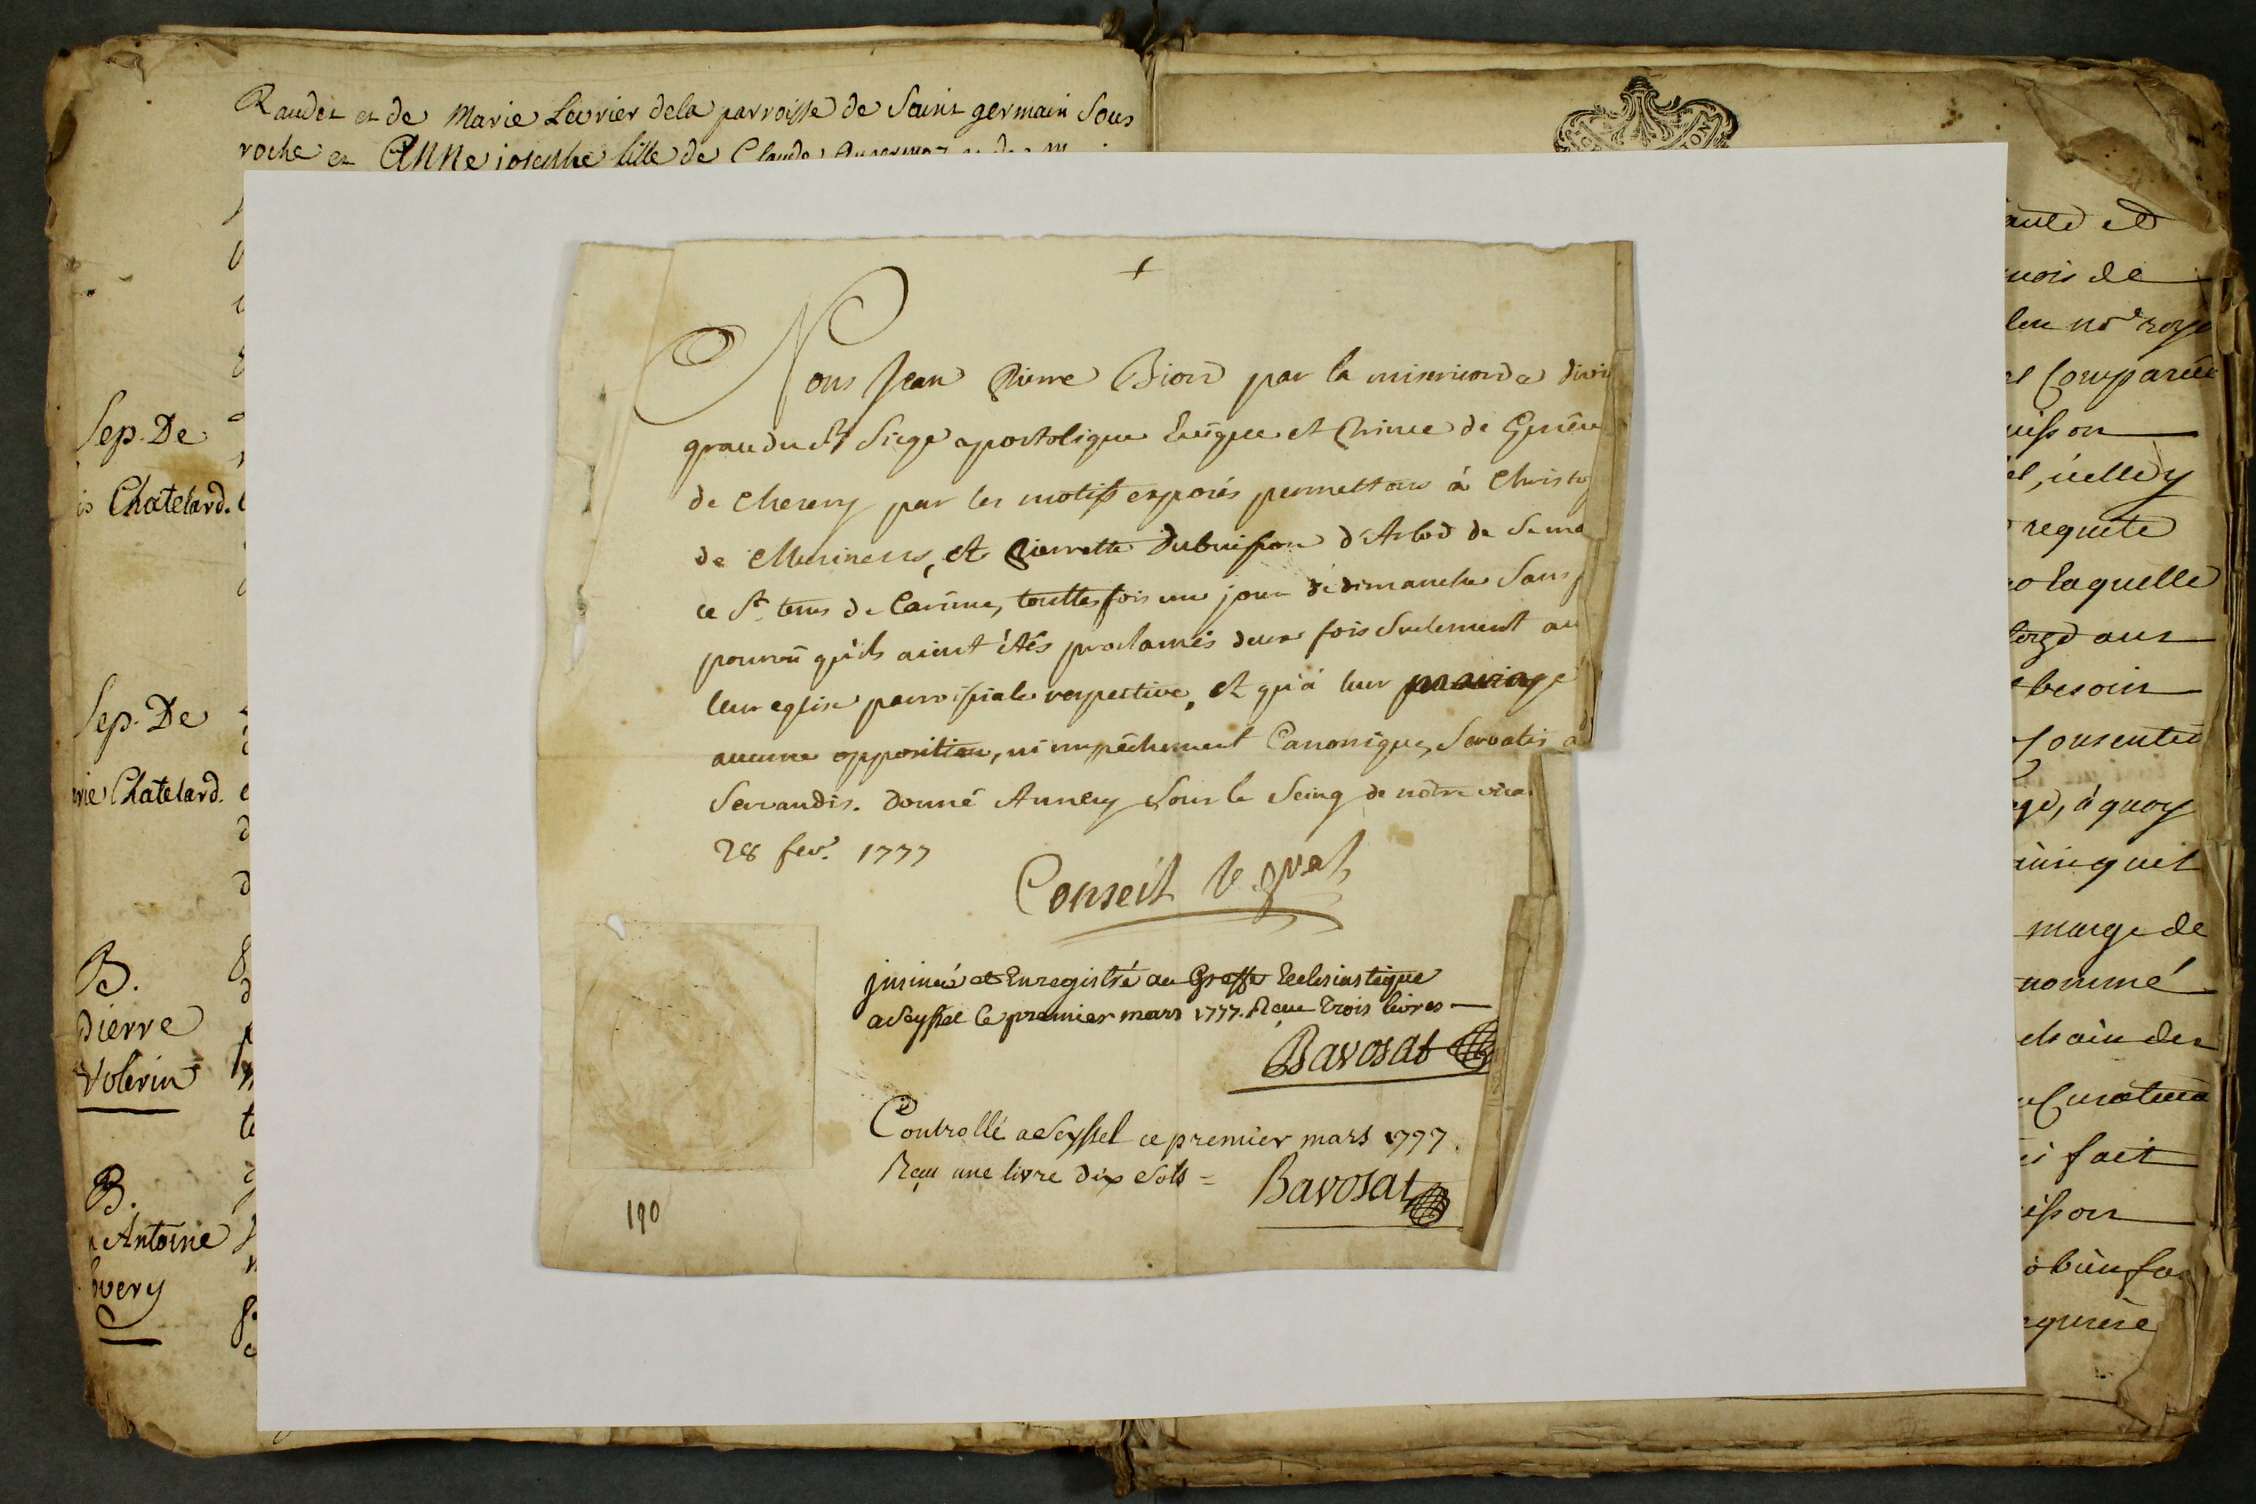 Raudet et de Marie Levrier dela parroisse de Saint germain Sous
roche et Anne iosephe fille de Claude
Sep. De
is Chatelard.
Sep. De
rie Chatelard.
B.
pierre
Volerin
B.
Antoine
very
+
Nous Jean Pierre Biord par la misericorde divin
grace du St Siege apostolique Evêque et Prince de Genêve
de Cherery par les motifs exposés permettons à Christo
de Musinens, et Pierrette Dubuisson d'Arlod de Se ma
ce St. tems de Carême, touttes fois un jour de dimanche Sans
pourvû qu'ils aient étés proclamés deux fois Seulement au
leur eglise parroissiale respective, et qu'à leur mariage
aucune opposition, ni empêchement Canonique, Servatis
Servandis. Donné Annecy Sous le Seing de notre vica
28 fev.r 1777
Conseil V. gral
jnsinué et Enregistré au Greffe Ecclesiastique
a Seyssel Ce premier mars 1777. Reçu Trois livres
Bavosat
Controllé a Seyssel ce premier mars 1777.
Reçu une livre dix Sols =
Bavosat
190
nois de
Comparüe
uisson
requete
laquelle
besoin
Consentie
à quoy
marge de
nommé
chain de
fait
isson